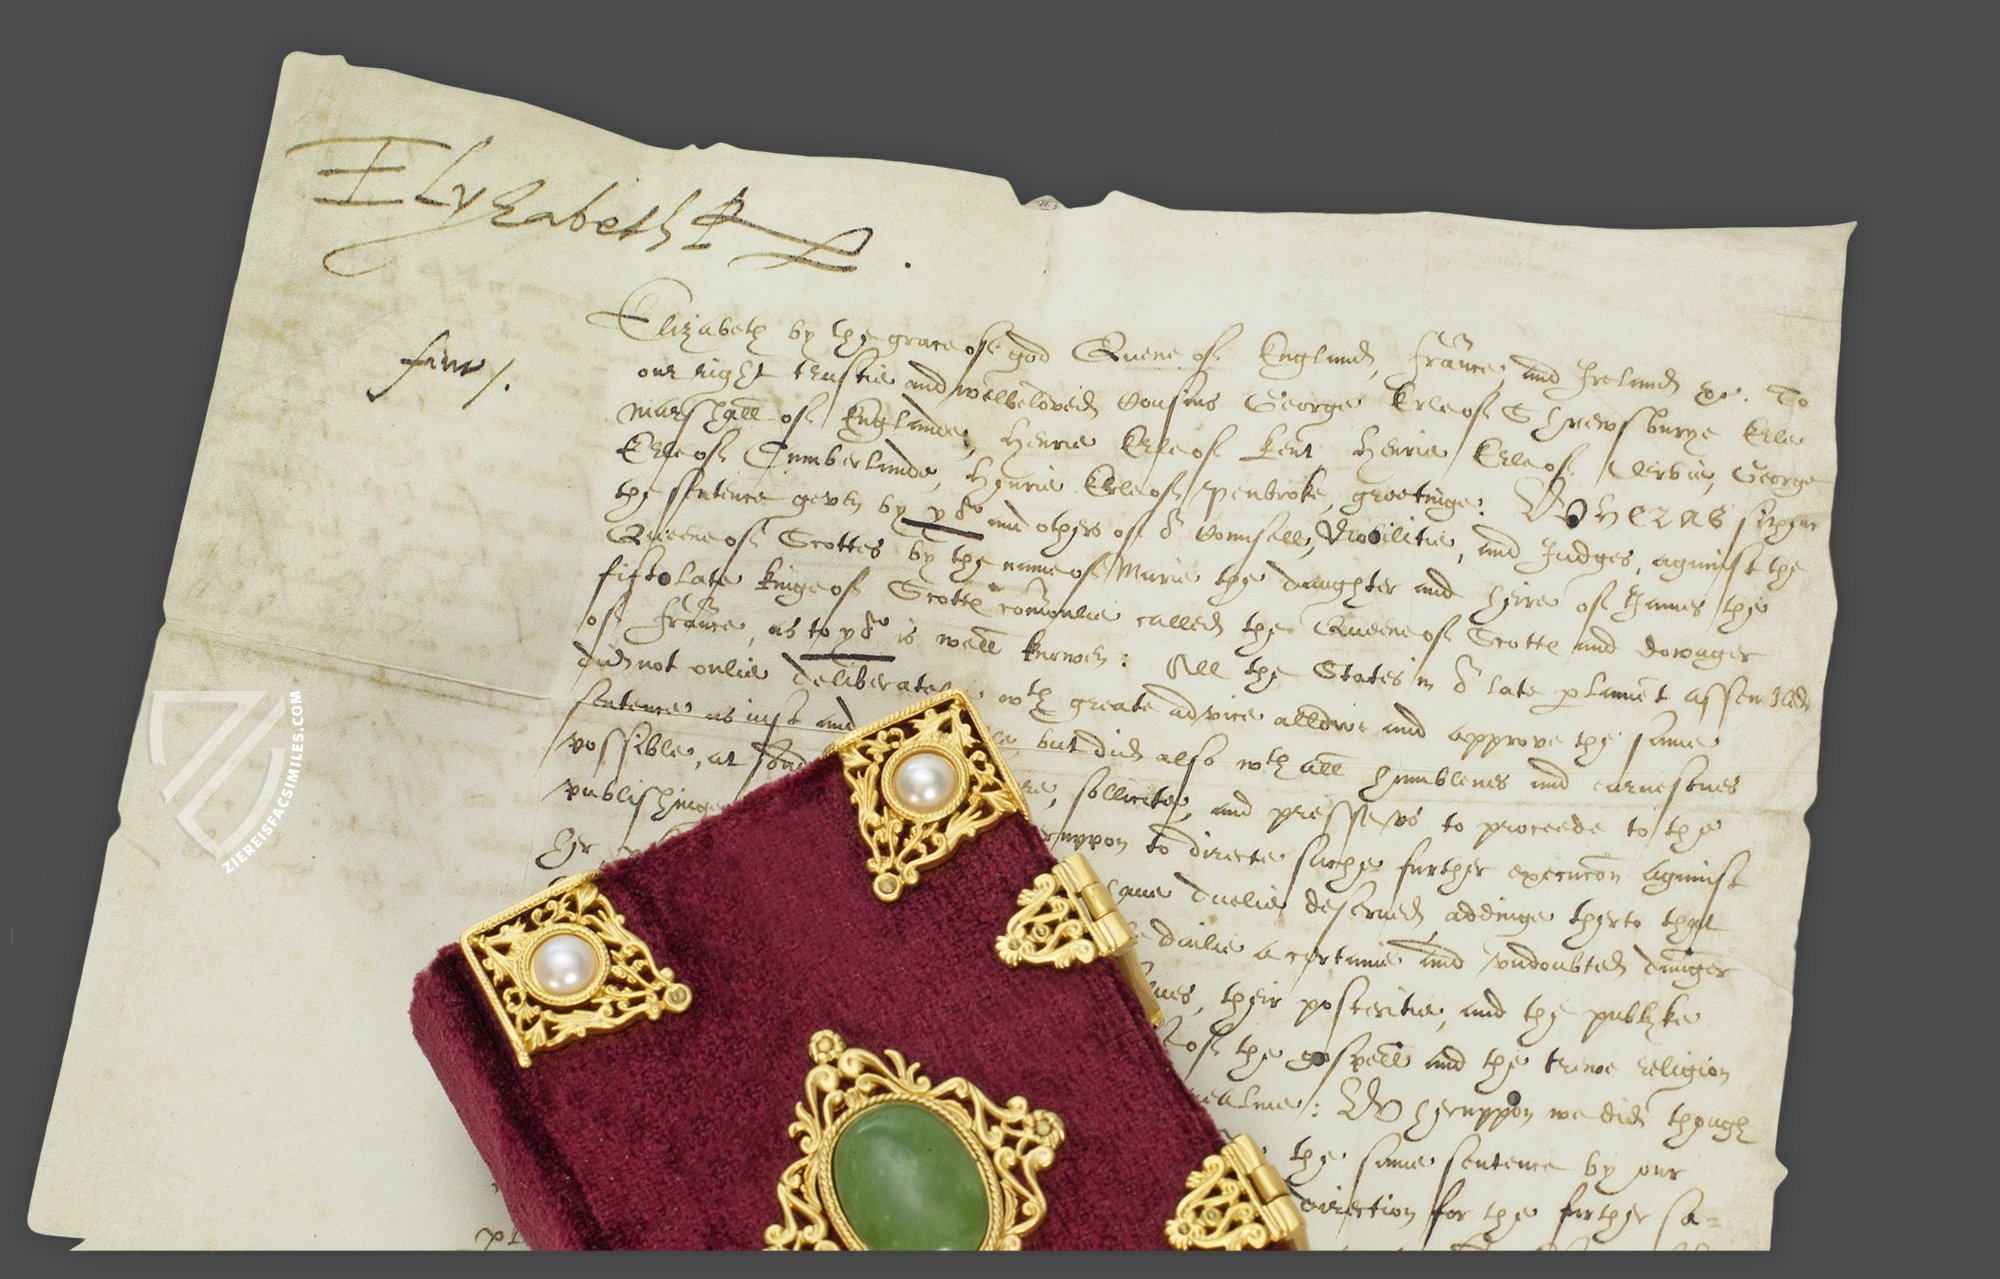 Elyzabeth R
Elizabeth by the grace of god Quene of England, Fraunce, and Ireland &c. To
our right trustie and welbeloved Cousins George Erle of Shrewsburye Erle
marshall of Englande, Henrie Erle of Kent Henrie Erle of Derbie, George
Erle of Cumberlande, Henrie Erle of Penbroke, greetinge: Wheras
the sentence geven by yow and others of our Counsell, Nobilitie, and Judges, against the
Queene of Scottes by the name of Marie the daughter and heire of James the
fift late kinge of Scotts comonlie called the Queene of Scotts and dowager
of Fraunce, as to yow is well knowen: All the States in our late parlament assembled
did not onlie deliberatelie wth greate advice allowe and approve the same
sentence as iust and but did also wth all humblenes and earnestnes
possible, at sollicite, and presse us to proceede to the
publishinge to directe suche further execucon against
her duelie deserved addinge therto that
dailie a certaine and undoubted daunger
their posteritie, and the publyke
of the gospell and the trewe religion
realme: Wheruppon we did though
the same sentence by our
direction for the further sa=
ZIEREISFACSIMILES.COM